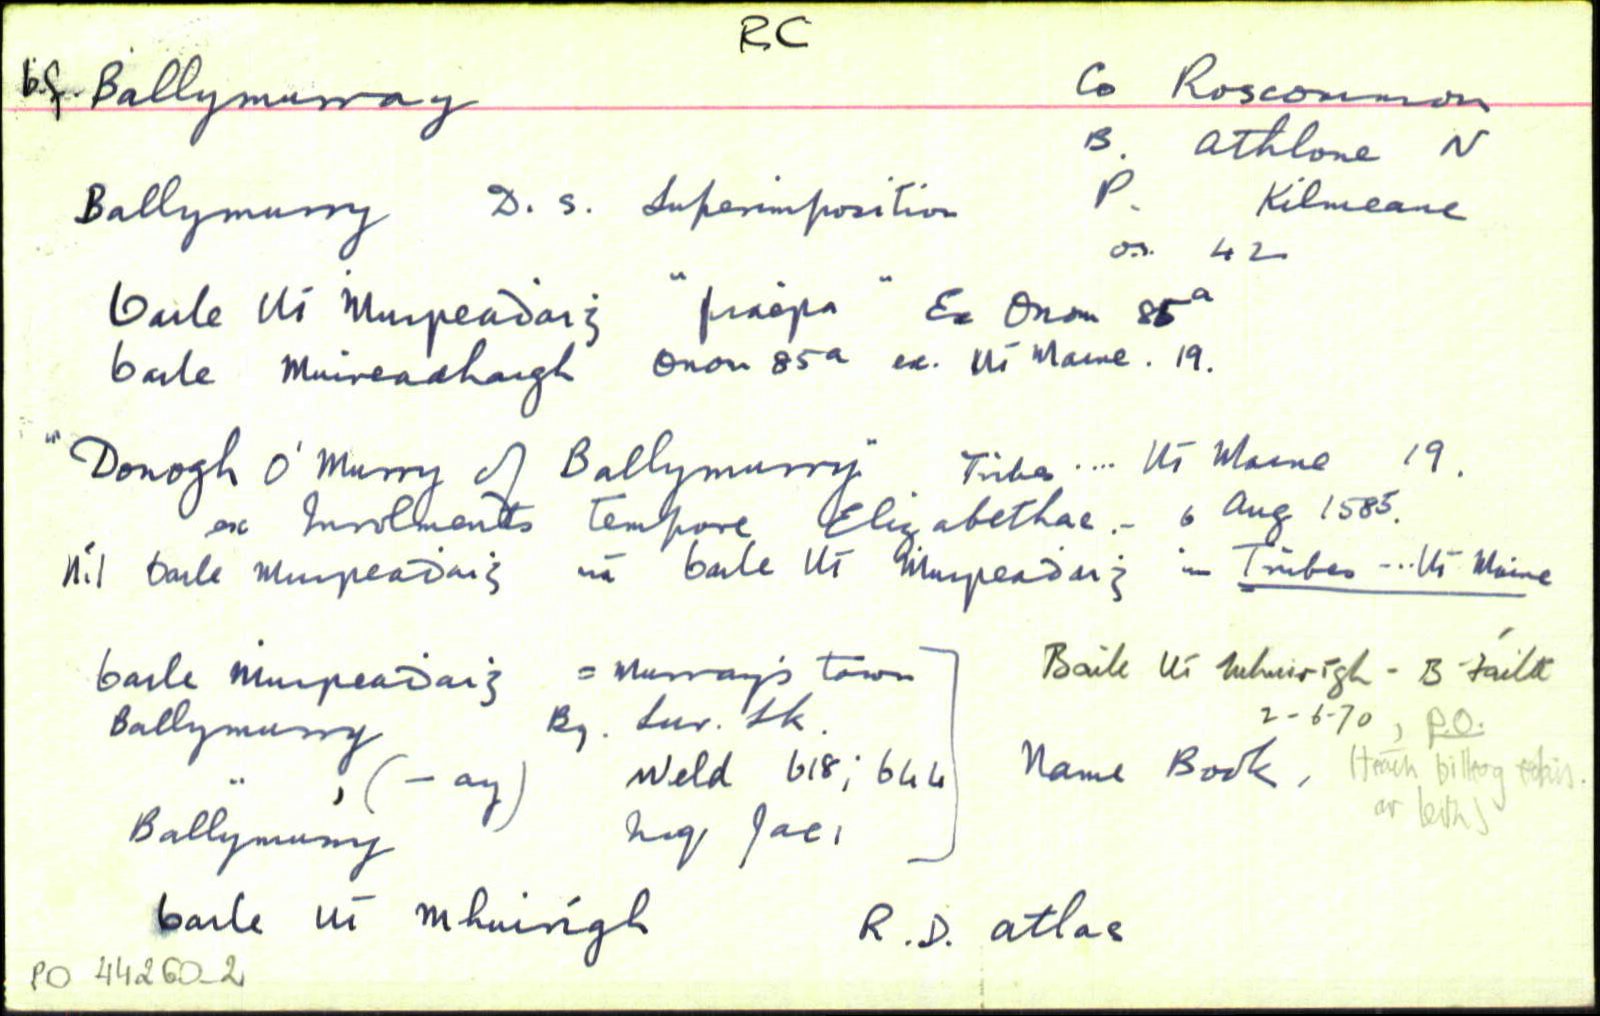 RC
bf. Ballymurray Co Roscommon
B. Athlone N
Ballymurry D. S. Superimposition P. Kilmeane
o.s. 42
baile Uí Muireaḋaiġ " " Ex Onom 85a
baile Muireadhaigh Onom 85a ex. Uí Maine. 19.
"Donogh O'Murry of Ballymurry" Tribes .... Uí Maine 19.
ex Inrolments tempore Elizabethae. - 6 Aug 1585.
Níl baile Muireaḋaiġ ná baile Uí Muireaḋaiġ in Tribes ... Uí Maine
baile Muireaḋaiġ = Murray's town
Ballymurry By. Sur. Sk.
" , (-ay) Weld 618; 644
Ballymurry Inq Jac 1
Baile Uí Mhuirígh - B Fáilte
2-6-70, P.O.
Name Book,
ar leith
baile Uí Mhuirígh R.D. atlas
PO 44260-2